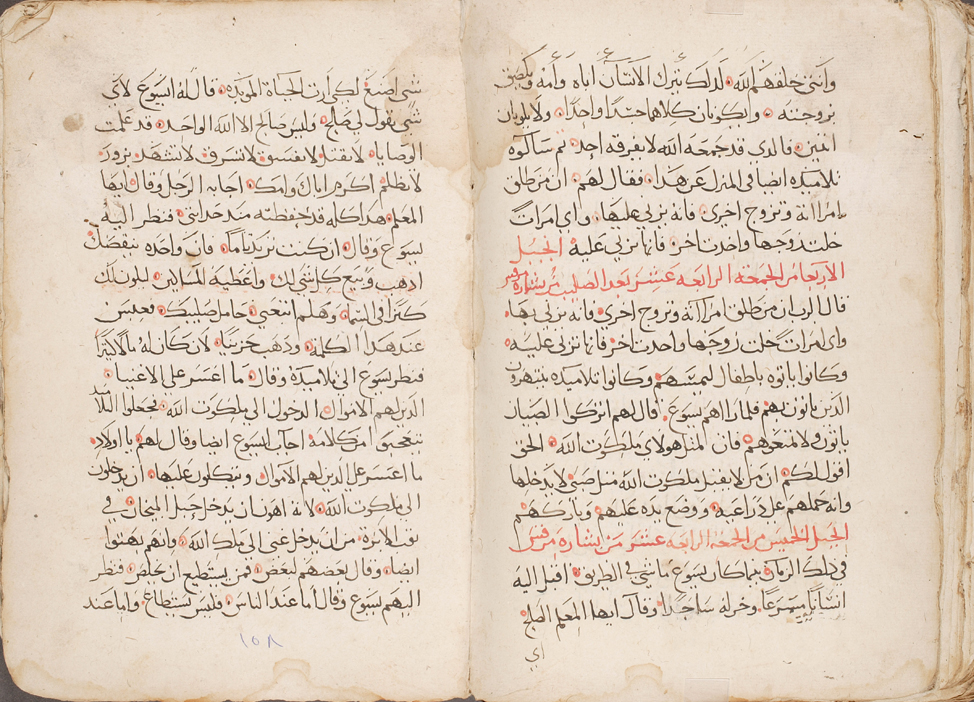 وانثى خلقهم الله لذلك يترك الانسان اباه وأمه ويلصق
بزوجته ويكونان كلاهما جسدًا واحدًا ولا يكونان
اثنين فالدي قد جمعه الله لا يفرقه احد ثم سالوه
تلاميده ايضا في المنزل عن هذا فقال لهم ان من طلق
امراته وتزوج اخرى فانه يزني عليها واي امراة
خلت زوجها واخدت اخر فانها تزني عليه الجيل
الاربعا من الجمعه الرابعه عشر بعد الصليب من بشارة مرقس
قال الرب ان من طلق امراته وتزوج اخرى فانه يزني بها
واي امراة خلت زوجها واخدت اخر فانها تزني عليه
وكانوا ياتوه باطفال ليمسهم وكانوا تلاميده ينتهرون
الدين ياتون بهم فلما راهم يسوع قال لهم اتركوا الصبيان
ياتون ولا تمنعوهم فان لمثل هولاي ملكوت الله الحق
اقول لكم ان من لا يقبل ملكوت الله مثل صبي لا يدخلها
وانه حملهم على دراعيه ووضع يده عليهم وباركهم
الجيل الخميس من الجمعه الرابعه عشر من بشاره مرقس
في ذلك الزمان بينما كان يسوع ماشي في الطريق اقبل اليه
انسانًا مسرعًا وخر له ساجدًا وقال ايها المعلم الصالح
اي
شي اصنع لكي ارت الحياة الموبده قال له يسوع لاي
شي يقول لي صالح وليس صالح الا الله الواحد قد علمت
الوصايا لا تقتل ولا تفسق لا تسرق لا تشهد بزور
لا تظلم اكرم اباك وامك اجابه الرجل وقال ايها
المعلم هدا كله قد حفظته مند حداتتي فنظر اليه
يسوع وقال ان كنت تريد تامًا فان واحده تنقصك
ادهب وبيع كل شي لك واعطيه المساكين ليكون لك
كنزا في السما وهلم اتبعني حامل صليبك فعبس
عند هدا الكلمة ودهب حزينًا لان كان له مالا كثيرًا
فنظر يسوع الى تلاميدة وقال ما اعسر على الاغنيا
الدين لهم الاموال الدخول الى ملكوت الله فجعلوا التلاميد
يتعجبوا من كلامه اجاب يسوع ايضا وقال لهم يا اولاد
ما اعسر على الدين لهم الاموال ويتكلون عليها ان يدخلون
الى ملكوت الله لانه اهون ان يدخل جبل الميحان في
ثقب الابرة من ان يدخل غني الى ملك الله وانهم بهتوا
ايضا وقال بعضهم لبعض فمن يستطيع ان يخلص فنظر
اليهم يسوع وقال أما عند الناس فليس يستطاع واما عند
١٥٨